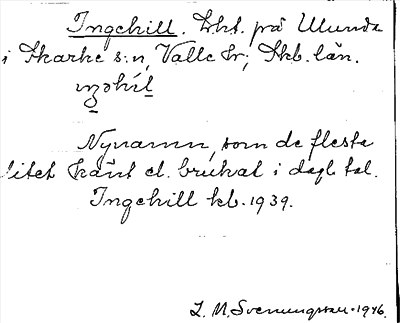 Ingehill. Lht. på Ulunda
i Skarke s:n, Valle hr; Skb. län.
ıŋəhíl
Nynamn, som de flesta
litet känt el. brukat i dagl. tal.
Ingehill kb. 1939.
L. M. Svenungsson. 1946.